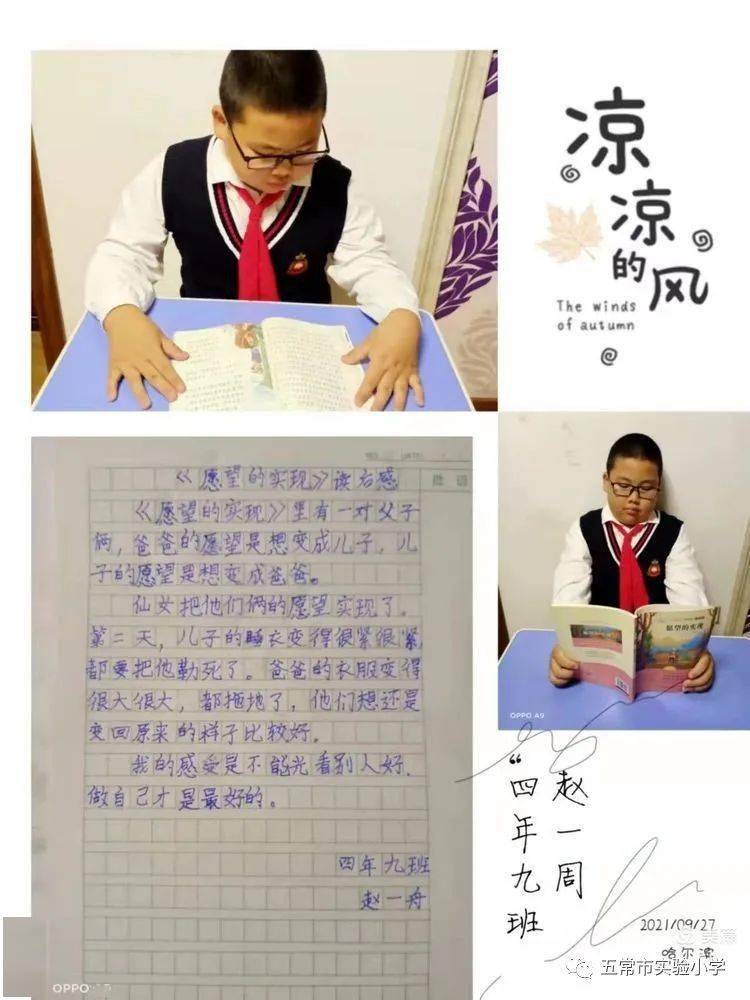 凉凉的风
The winds
of autumn
愿望的实现
OPPO A9
《愿望的实现》读后感
《愿望的实现》里有一对父子
俩,爸爸的愿望是想变成儿子,儿
子的愿望是想变成爸爸。
仙女把他们俩的愿望实现了。
第二天,儿子的睡衣变得很紧很紧
都要把他勒死了。爸爸的衣服变得
很大很大,都拖地了,他们想还是
变回原来的样子比较好。
我的感受是不能光看别人好,
做自己才是最好的。
四年九班
赵一舟
OPPO
赵一周
“四年九班
2021/09/27
哈尔滨
美篇
五常市实验小学